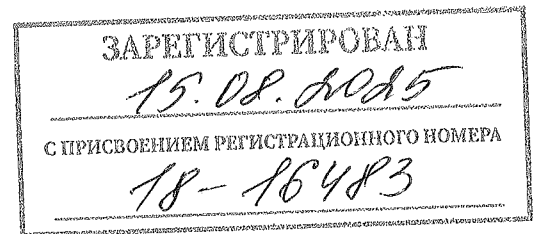 ЗАРЕГИСТРИРОВАН
15.08.2025
С ПРИСВОЕНИЕМ РЕГИСТРАЦИОННОГО НОМЕРА
18-16483